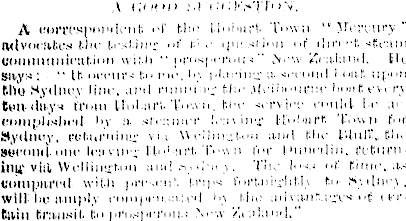 A GOOD SUGGESTION.
A correspondent of the Hobart Town "Mercury"
advocates the testing of the question of direct steam
communication with "prosperous" New Zealand. He
says: "It occurs to me, by placing a second boat upon
the Sydney line, and running the Melbourne boat every
ten days from Hobart Town, the service could be ac-
complished by a steamer leaving Hobart Town for
Sydney, returning via Wellington and the Bluff, the
second one leaving Hobart Town for Dunedin, return-
ing via Wellington and Sydney. The loss of time, as
compared with present trips fortnightly to Sydney,
will be amply compensated by the advantages of cer-
tain transit to prosperous New Zealand."